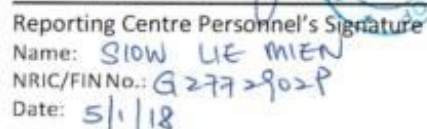 Reporting Centre Personnel's Signature
Name: SIOW LIE MIEN
NRIC/FIN No.: G2772902P
Date: 5/1/18